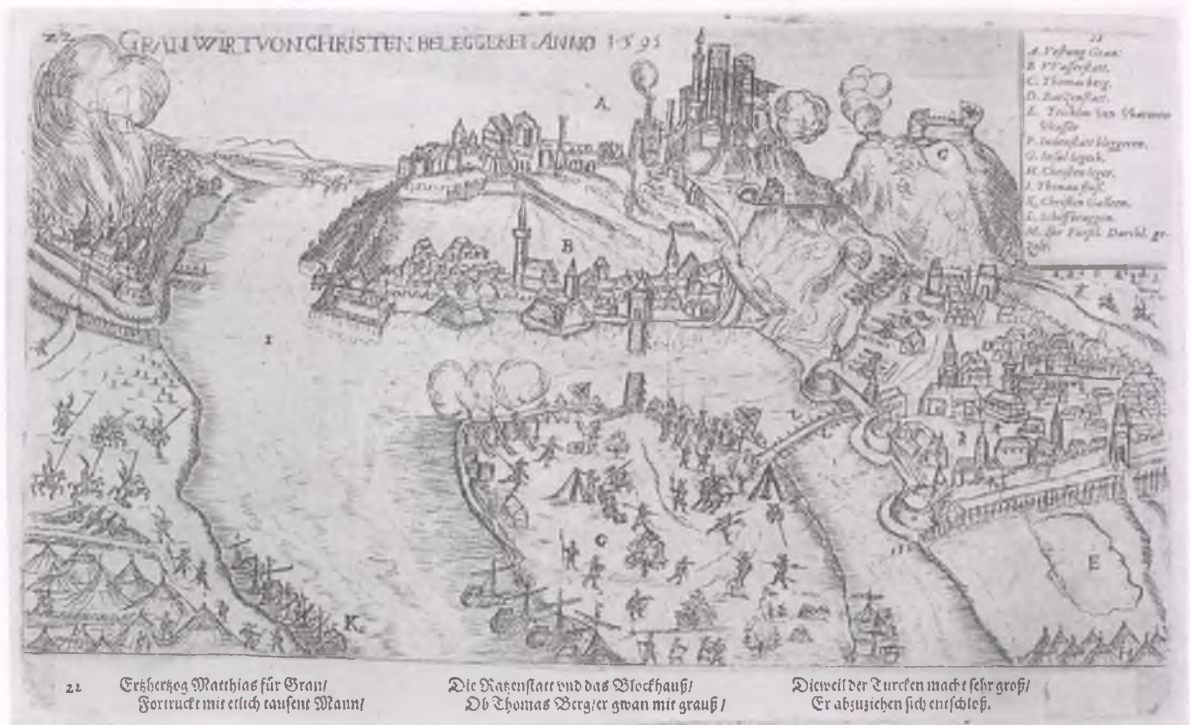 22 GRAN WIRT VON CHRISTEN BELEGGERET ANNO 1595
22
A. Vestung Gran.
B. Wasserstatt.
C. Thomasberg.
D. Ratzenstatt.
E. Teuchlen von Warmem
Wasser
G. Insel
H. Christen leger.
K. Christen Galleen.
L. Schiffbruggen.
M. Ihr Fürstl. Durchl. ge-
zelt.
A
B
C
I
G
K
E
22 Ertzhertzog Matthias für Gran/
Fortruckt mit etlich tausent Mann/
Die Ratzenstatt vnd das Blockhauß/
Ob Thomas Berg/er gwan mit grauß/
Dieweil der Turcken macht sehr groß/
Er abzuziehen sich entschloß.